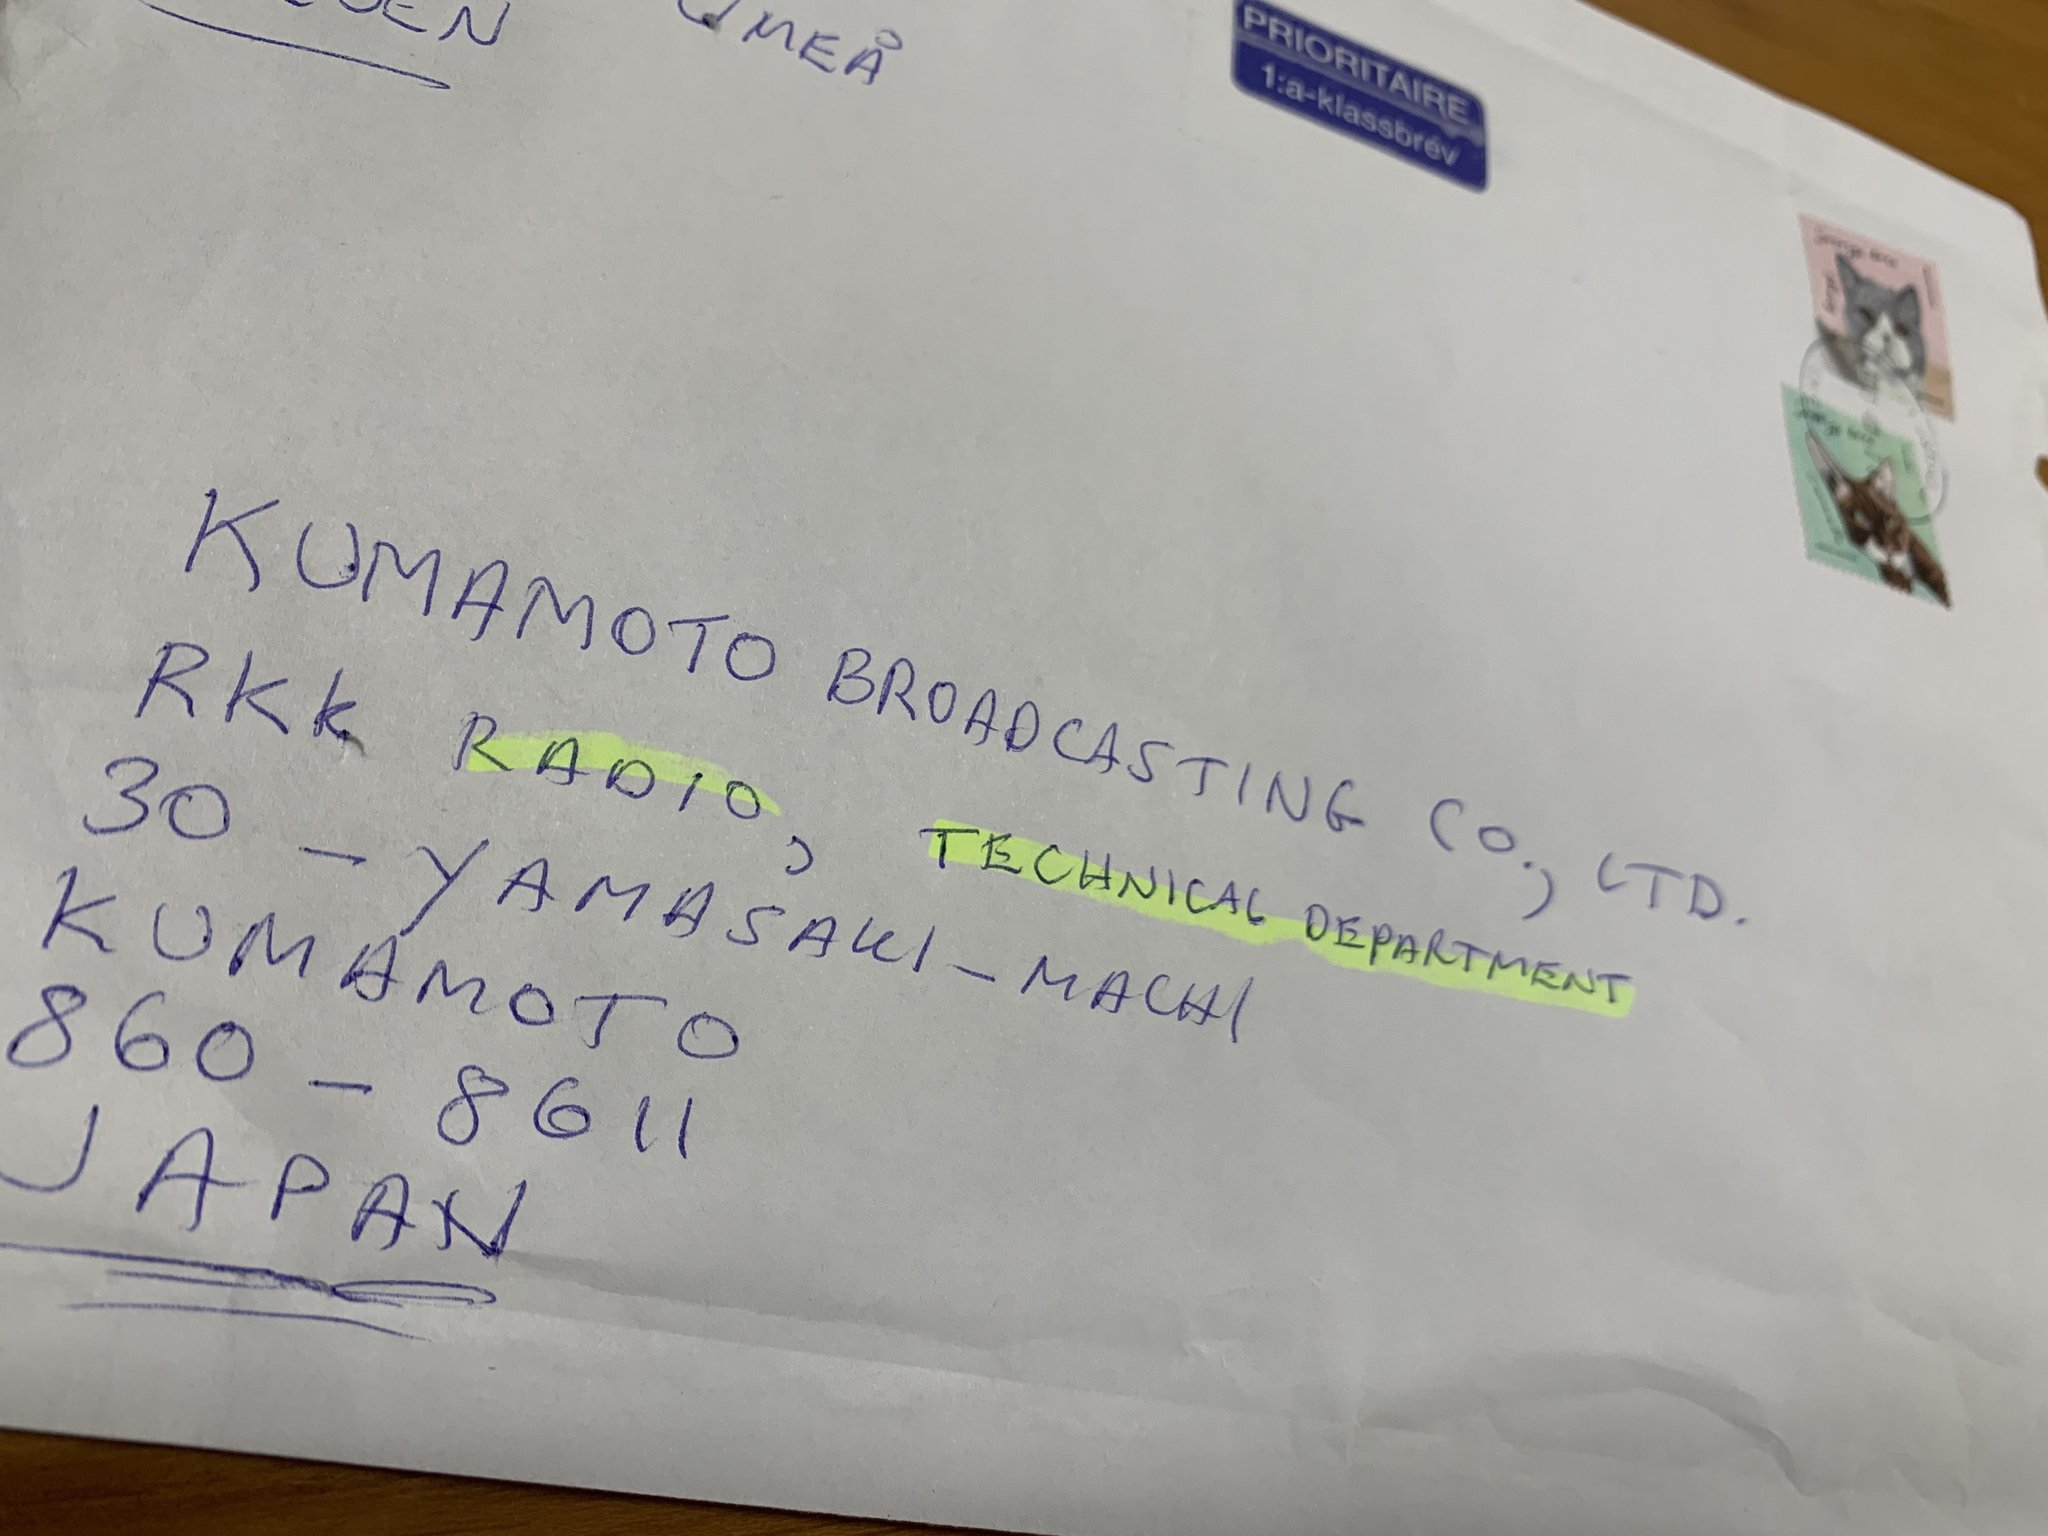 UMEÅ
PRIORITAIRE
1:a-klassbrev
KUMAMOTO BROADCASTING CO., LTD.
RKK RADIO, TECHNICAL DEPARTMENT
30 - YAMASAKI - MACHI
KUMAMOTO
860 - 8611
JAPAN